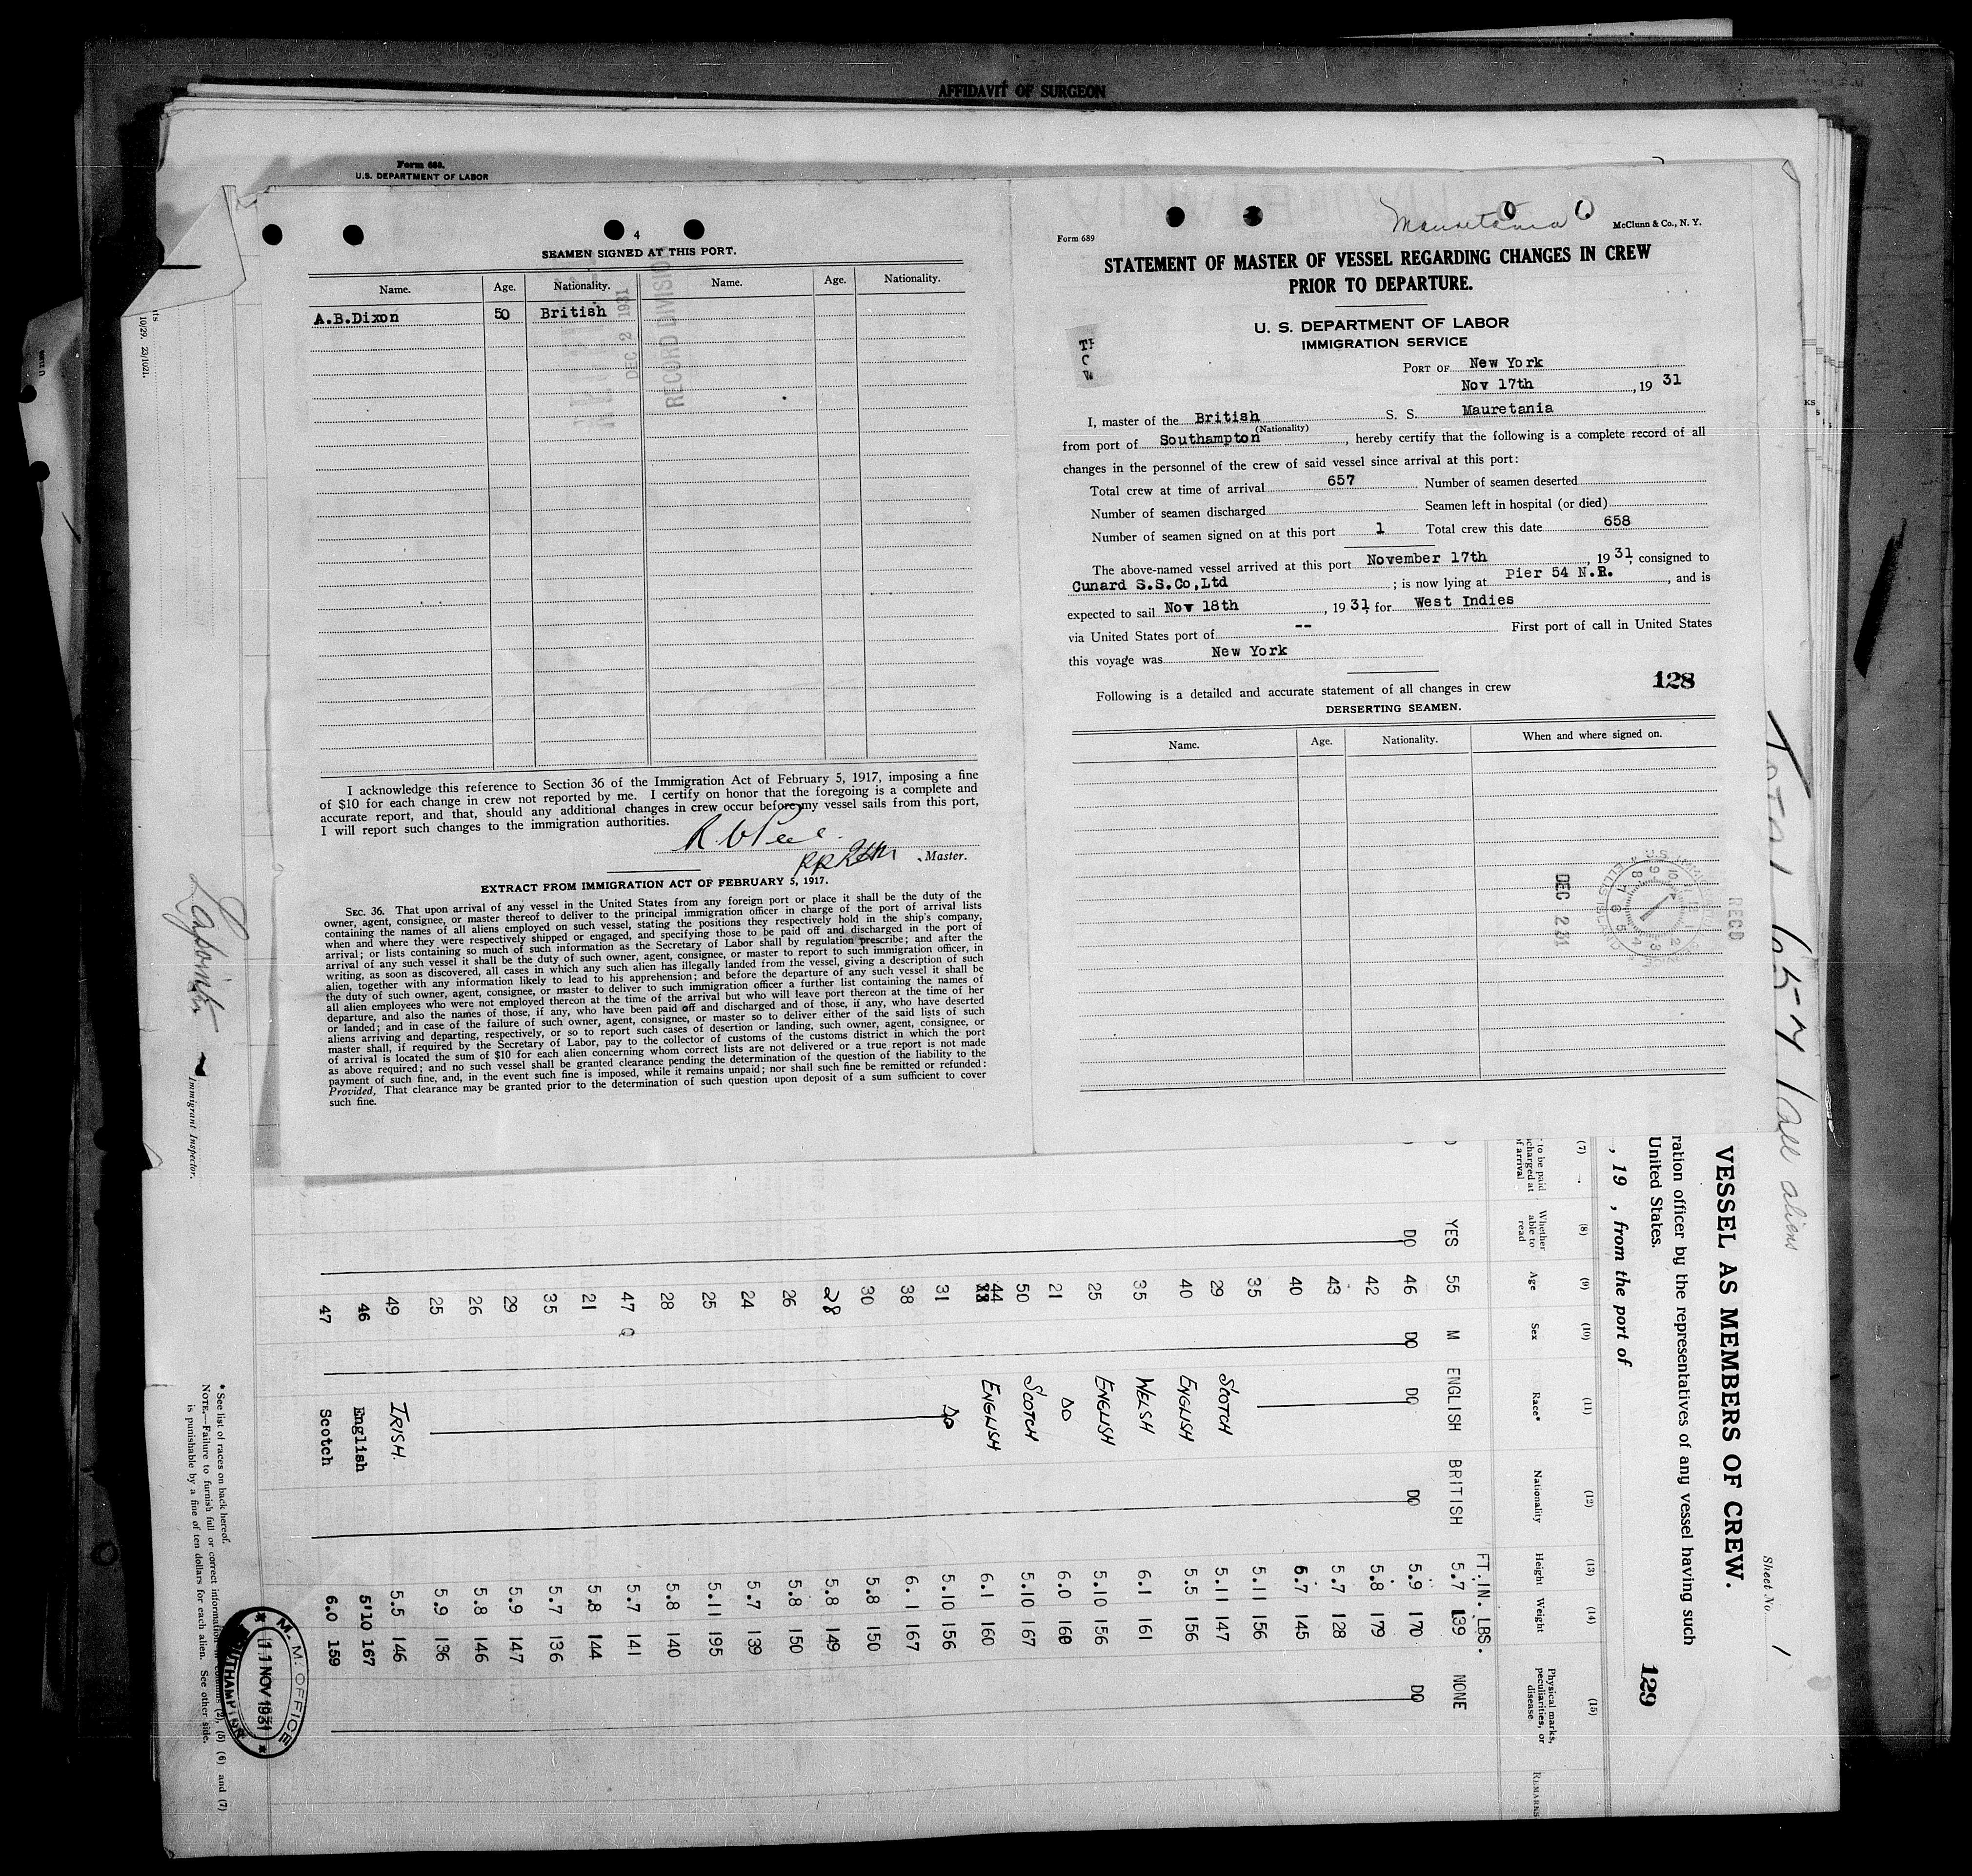 AFFIDAVIT OF SURGEON
Form 689.
U.S. DEPARTMENT OF LABOR
4
SEAMEN SIGNED AT THIS PORT.
Name. Age. Nationality. Name. Age. Nationality.
A.B.Dixon 50 British
DEC 2 1931
RECORD DIVISION
I acknowledge this reference to Section 36 of the Immigration Act of February 5, 1917, imposing a fine
of $10 for each change in crew not reported by me. I certify on honor that the foregoing is a complete and
accurate report, and that, should any additional changes in crew occur before my vessel sails from this port,
I will report such changes to the immigration authorities.
, Master.
EXTRACT FROM IMMIGRATION ACT OF FEBRUARY 5, 1917.
SEC. 36. That upon arrival of any vessel in the United States from any foreign port or place it shall be the duty of the
owner, agent, consignee, or master thereof to deliver to the principal immigration officer in charge of the port of arrival lists
containing the names of all aliens employed on such vessel, stating the positions they respectively hold in the ship's company,
when and where they were respectively shipped or engaged, and specifying those to be paid off and discharged in the port of
arrival; or lists containing so much of such information as the Secretary of Labor shall by regulation prescribe; and after the
arrival of any such vessel it shall be the duty of such owner, agent, consignee, or master to report to such immigration officer, in
writing, as soon as discovered, all cases in which any such alien has illegally landed from the vessel, giving a description of such
alien, together with any information likely to lead to his apprehension; and before the departure of any such vessel it shall be
the duty of such owner, agent, consignee, or master to deliver to such immigration officer a further list containing the names of
all alien employees who were not employed thereon at the time of the arrival but who will leave port thereon at the time of her
departure, and also the names of those, if any, who have been paid off and discharged and of those, if any, who have deserted
or landed; and in case of the failure of such owner, agent, consignee, or master so to deliver either of the said lists of such
aliens arriving and departing, respectively, or so to report such cases of desertion or landing, such owner, agent, consignee, or
master shall, if required by the Secretary of Labor, pay to the collector of customs of the customs district in which the port
of arrival is located the sum of $10 for each alien concerning whom correct lists are not delivered or a true report is not made
as above required; and no such vessel shall be granted clearance pending the determination of the question of the liability to the
payment of such fine, and, in the event such fine is imposed, while it remains unpaid; nor shall such fine be remitted or refunded:
Provided, That clearance may be granted prior to the determination of such question upon deposit of a sum sufficient to cover
such fine.
Mauretania
Form 689
McClunn & Co., N. Y.
STATEMENT OF MASTER OF VESSEL REGARDING CHANGES IN CREW
PRIOR TO DEPARTURE.
U. S. DEPARTMENT OF LABOR
IMMIGRATION SERVICE
PORT OF New York
Nov 17th , 19 31
I, master of the British S. S. Mauretania
(Nationality)
from port of Southampton , hereby certify that the following is a complete record of all
changes in the personnel of the crew of said vessel since arrival at this port:
Total crew at time of arrival 657 Number of seamen deserted
Number of seamen discharged Seamen left in hospital (or died)
Number of seamen signed on at this port 1 Total crew this date 658
The above-named vessel arrived at this port November 17th , 19 31, consigned to
Cunard S.S.Co,Ltd ; is now lying at Pier 54 N.R. , and is
expected to sail Nov 18th , 19 31, for West Indies
via United States port of -- First port of call in United States
this voyage was New York
128
Following is a detailed and accurate statement of all changes in crew
DERSERTING SEAMEN.
Name. Age. Nationality. When and where signed on.
RECD
DEC 2 31
Total 657 / all aliens
Sheet No. 1
VESSEL AS MEMBERS OF CREW.
ration officer by the representatives of any vessel having such
United States.
129
, 19 , from the port of
(7) (8) (9) (10) (11) (12) (13) (14) (15)
to be paid
charged at
of arrival
Whether able to read
Age
Sex
Race*
Nationality
Height
Weight
Physical marks, peculiarities, or disease
REMARKS
FT.IN. LBS.
YES 55 M ENGLISH BRITISH 5.7 139 NONE
DO 46 DO DO DO 5.9 170 DO
42 5.8 179
43 5.7 128
40 5.7 145
35 5.11 156
29 SCOTCH 5.11 147
40 ENGLISH 5.5 156
35 WELSH 6.1 161
25 ENGLISH 5.10 156
21 DO 6.0 160
50 SCOTCH 5.10 167
44 ENGLISH 6.1 160
31 DO 5.10 156
38 6.1 167
30 5.8 150
28 5.8 149
26 5.8 150
24 5.7 139
25 5.11 195
28 5.8 140
47 5.7 141
21 5.8 144
35 5.7 136
29 5.9 147
26 5.8 146
25 5.9 136
49 IRISH. 5.5 146
46 English 5'10 167
47 Scotch 6.0 159
* See list of races on back hereof.
NOTE.—Failure to furnish full or correct information in columns (2), (5) (6) and (7)
is punishable by a fine of ten dollars for each alien. See other side.
M. M. OFFICE
11 NOV 1931
SOUTHAMPTON
Immigrant Inspector.
10/29. 23/1021.